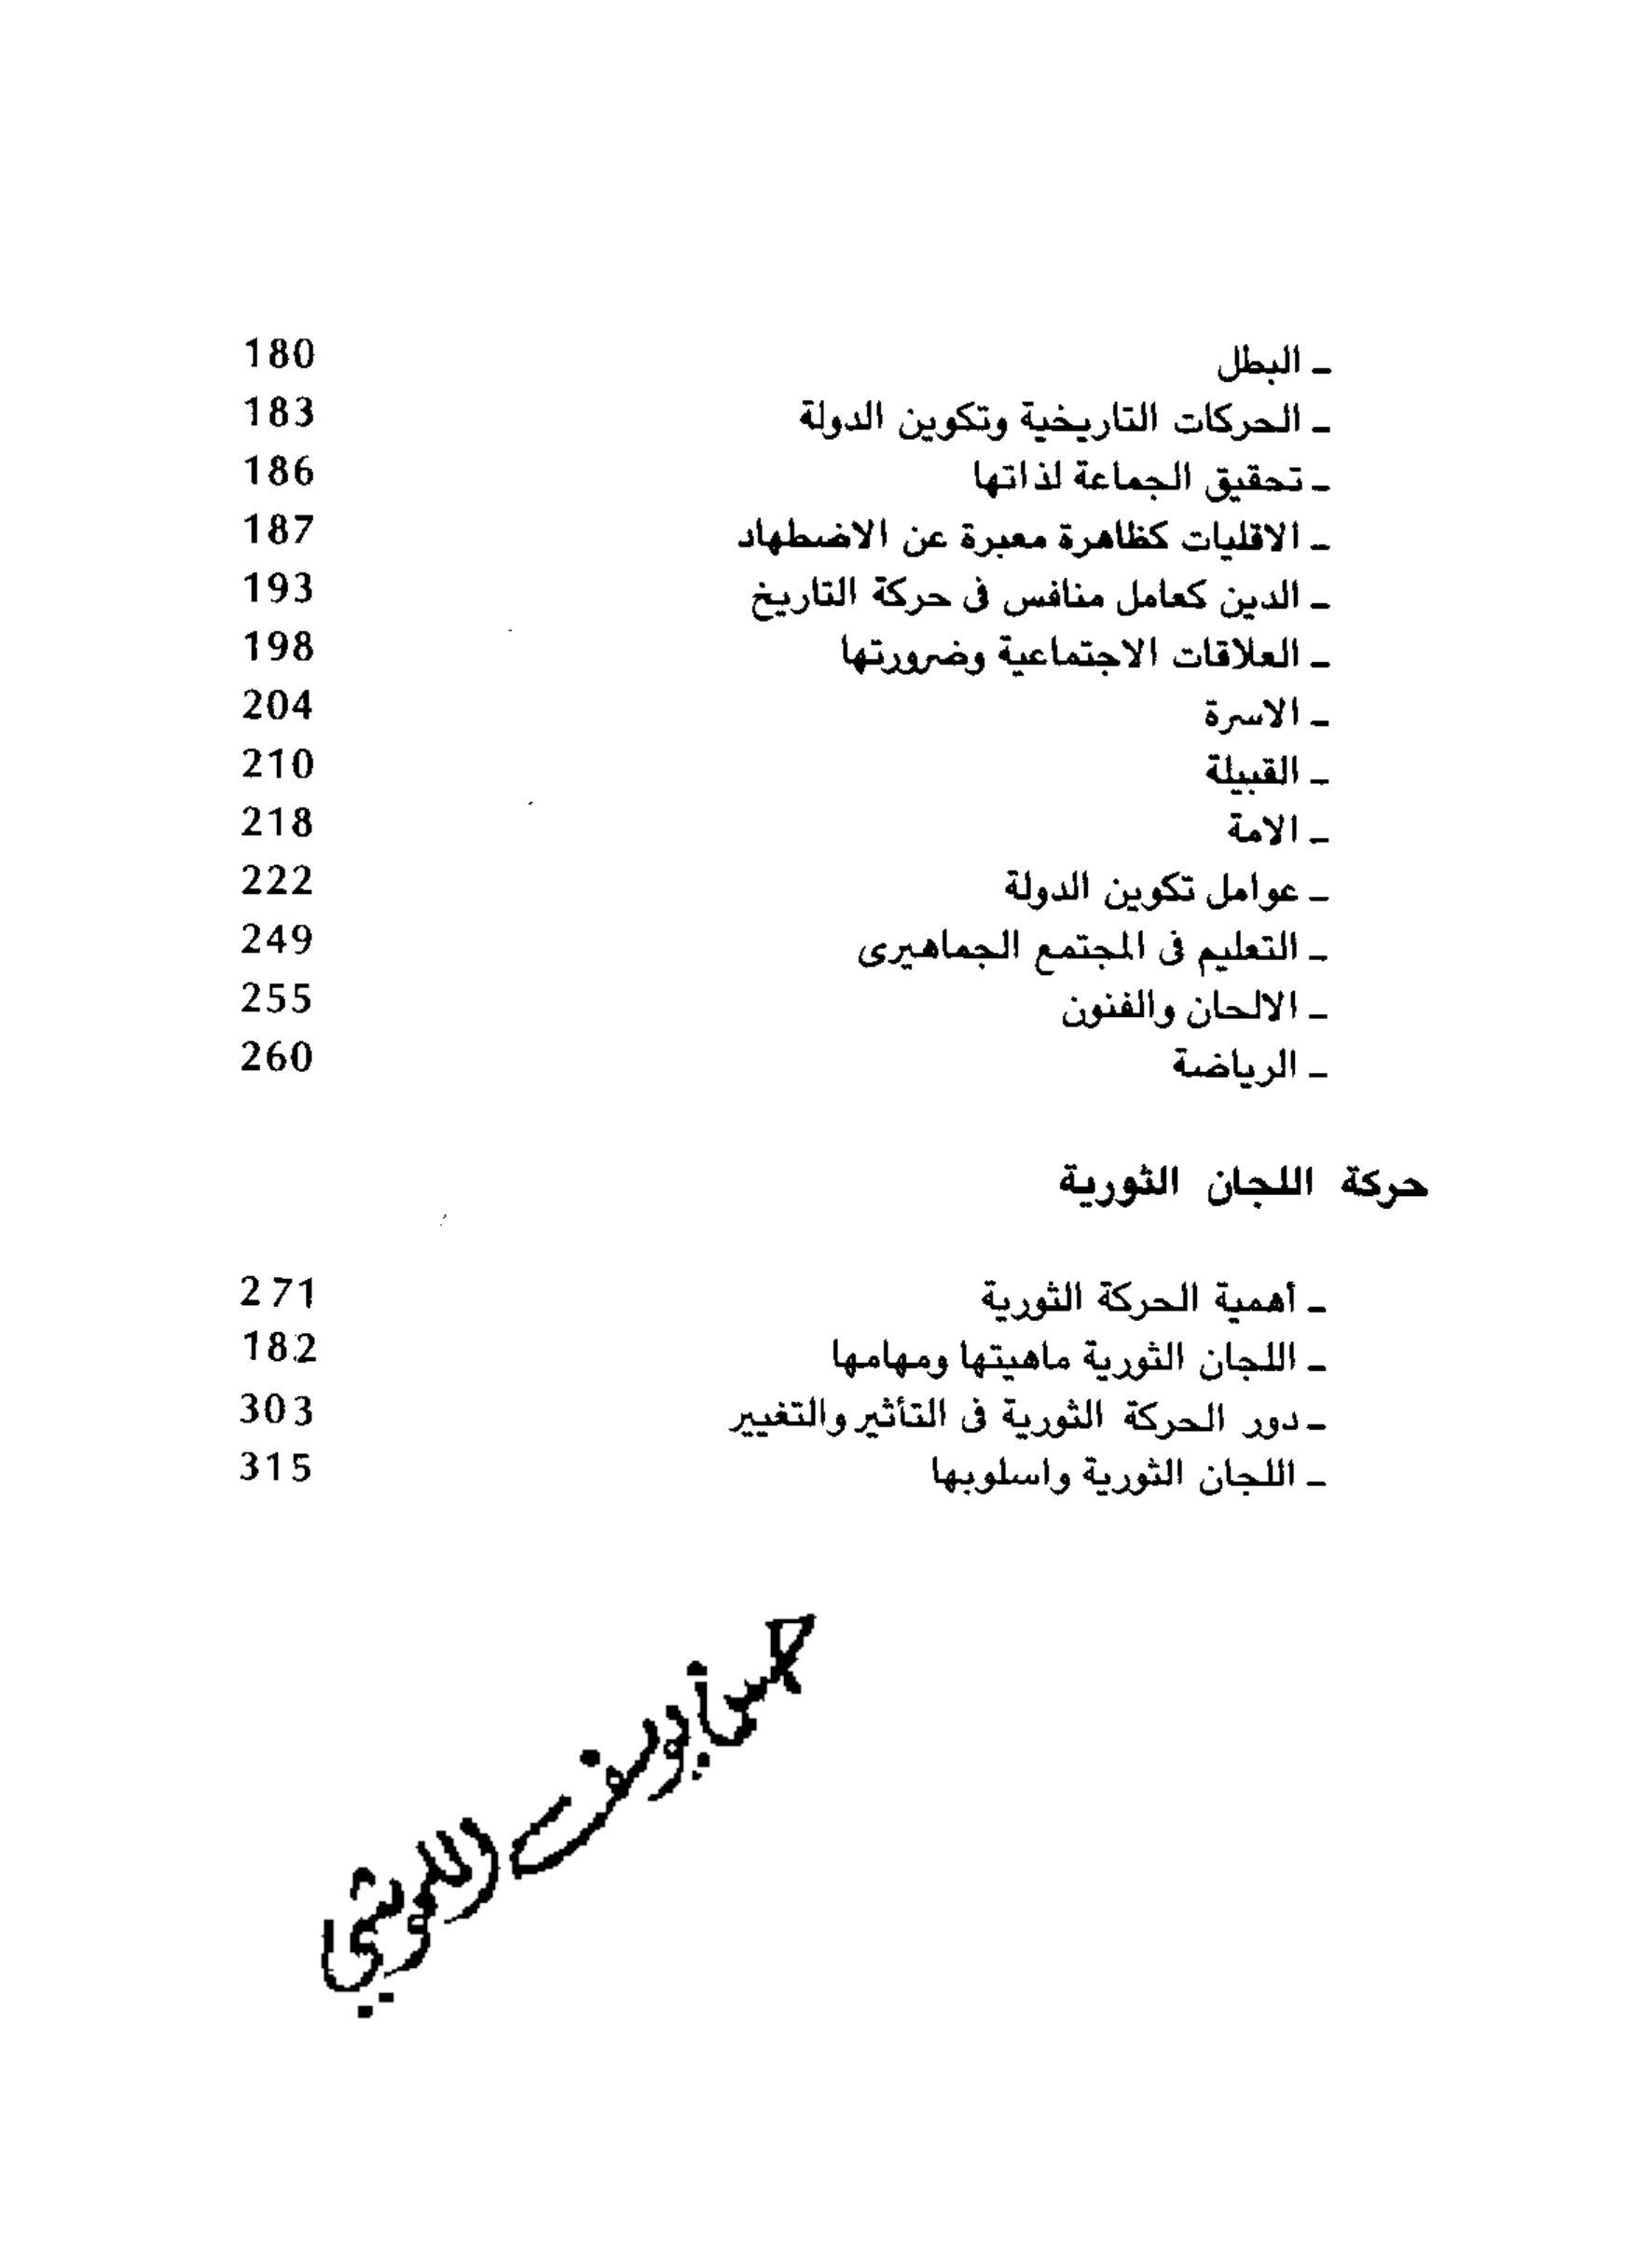 ـ البطل 180
ـ الحركات التاريخية وتكوين الدولة 183
ـ تحقيق الجماعة لذاتها 186
ـ الاقليات كظاهرة معبرة عن الاضطهاد 187
ـ الدين كعامل منافس فى حركة التاريخ 193
ـ العلاقات الاجتماعية وضرورتها 198
ـ الاسرة 204
ـ القبيلة 210
ـ الامة 218
ـ عوامل تكوين الدولة 222
ـ التعليم فى المجتمع الجماهيرى 249
ـ الالحان والفنون 255
ـ الرياضة 260
حركة اللجان الثورية
ـ أهمية الحركة الثورية 271
ـ اللجان الثورية ماهيتها ومهامها 182
ـ دور الحركة الثورية فى التأثير والتغيير 303
ـ اللجان الثورية واسلوبها 315